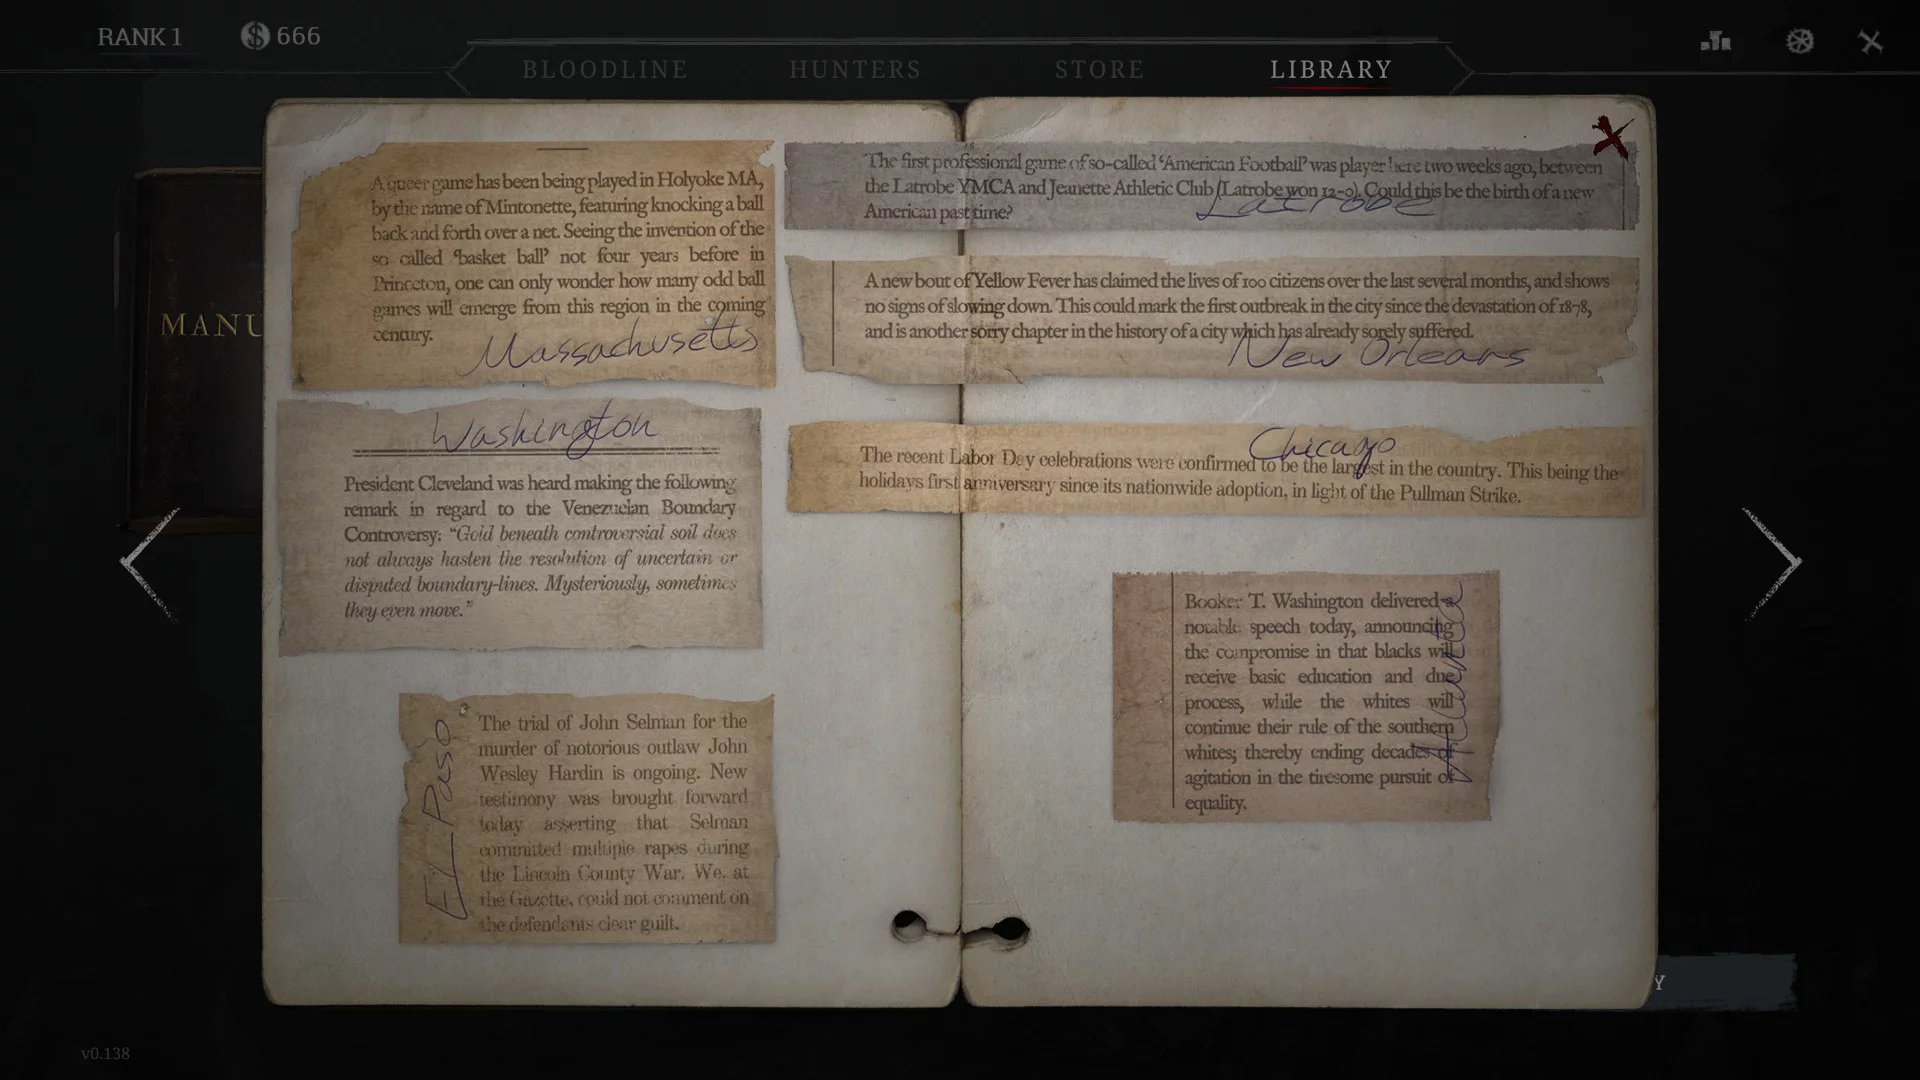 RANK 1
666
BLOODLINE
HUNTERS
STORE
LIBRARY
MANU
A queer game has been being played in Holyoke MA,
by the name of Mintonette, featuring knocking a ball
back and forth over a net. Seeing the invention of the
so called 'basket ball' not four years before in
Princeton, one can only wonder how many odd ball
games will emerge from this region in the coming
century.
Massachusetts
Washington
President Cleveland was heard making the following
remark in regard to the Venezuelan Boundary
Controversy: "Gold beneath controversial soil does
not always hasten the resolution of uncertain or
disputed boundary-lines. Mysteriously, sometimes
they even move."
El Paso
The trial of John Selman for the
murder of notorious outlaw John
Wesley Hardin is ongoing. New
testimony was brought forward
today asserting that Selman
committed multiple rapes during
the Lincoln County War. We, at
the Gazette, could not comment on
the defendants clear guilt.
The first professional game of so-called 'American Football' was player here two weeks ago, between
the Latrobe YMCA and Jeanette Athletic Club (Latrobe won 12-0). Could this be the birth of a new
American past time?
Latrobe
A new bout of Yellow Fever has claimed the lives of 100 citizens over the last several months, and shows
no signs of slowing down. This could mark the first outbreak in the city since the devastation of 1878,
and is another sorry chapter in the history of a city which has already sorely suffered.
New Orleans
Chicago
The recent Labor Day celebrations were confirmed to be the largest in the country. This being the
holidays first anniversary since its nationwide adoption, in light of the Pullman Strike.
Booker T. Washington delivered a
notable speech today, announcing
the compromise in that blacks will
receive basic education and due
process, while the whites will
continue their rule of the southern
whites; thereby ending decades of
agitation in the tiresome pursuit of
equality.
Atlanta
Y
v0.138